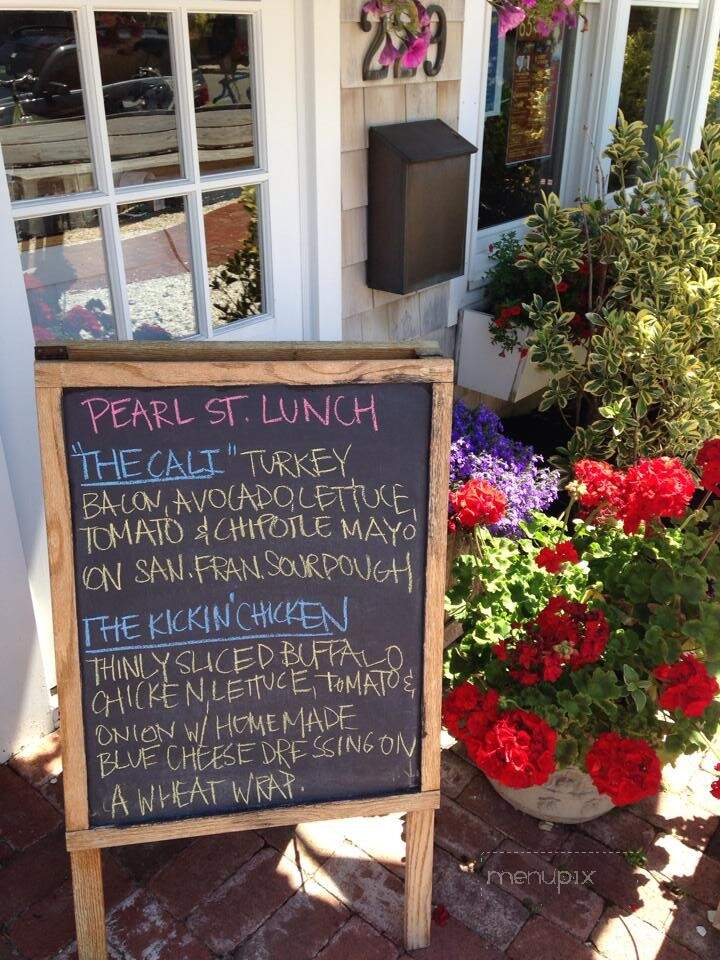 229
PEARL ST. LUNCH
"THE CALI" TURKEY,
BACON, AVOCADO, LETTUCE,
TOMATO & CHIPOTLE MAYO
ON SAN. FRAN. SOURDOUGH
THE KICKIN' CHICKEN
THINLY SLICED BUFFALO
CHICKEN LETTUCE, TOMATO &
ONION W/ HOMEMADE
BLUE CHEESE DRESSING ON
A WHEAT WRAP.
menupix